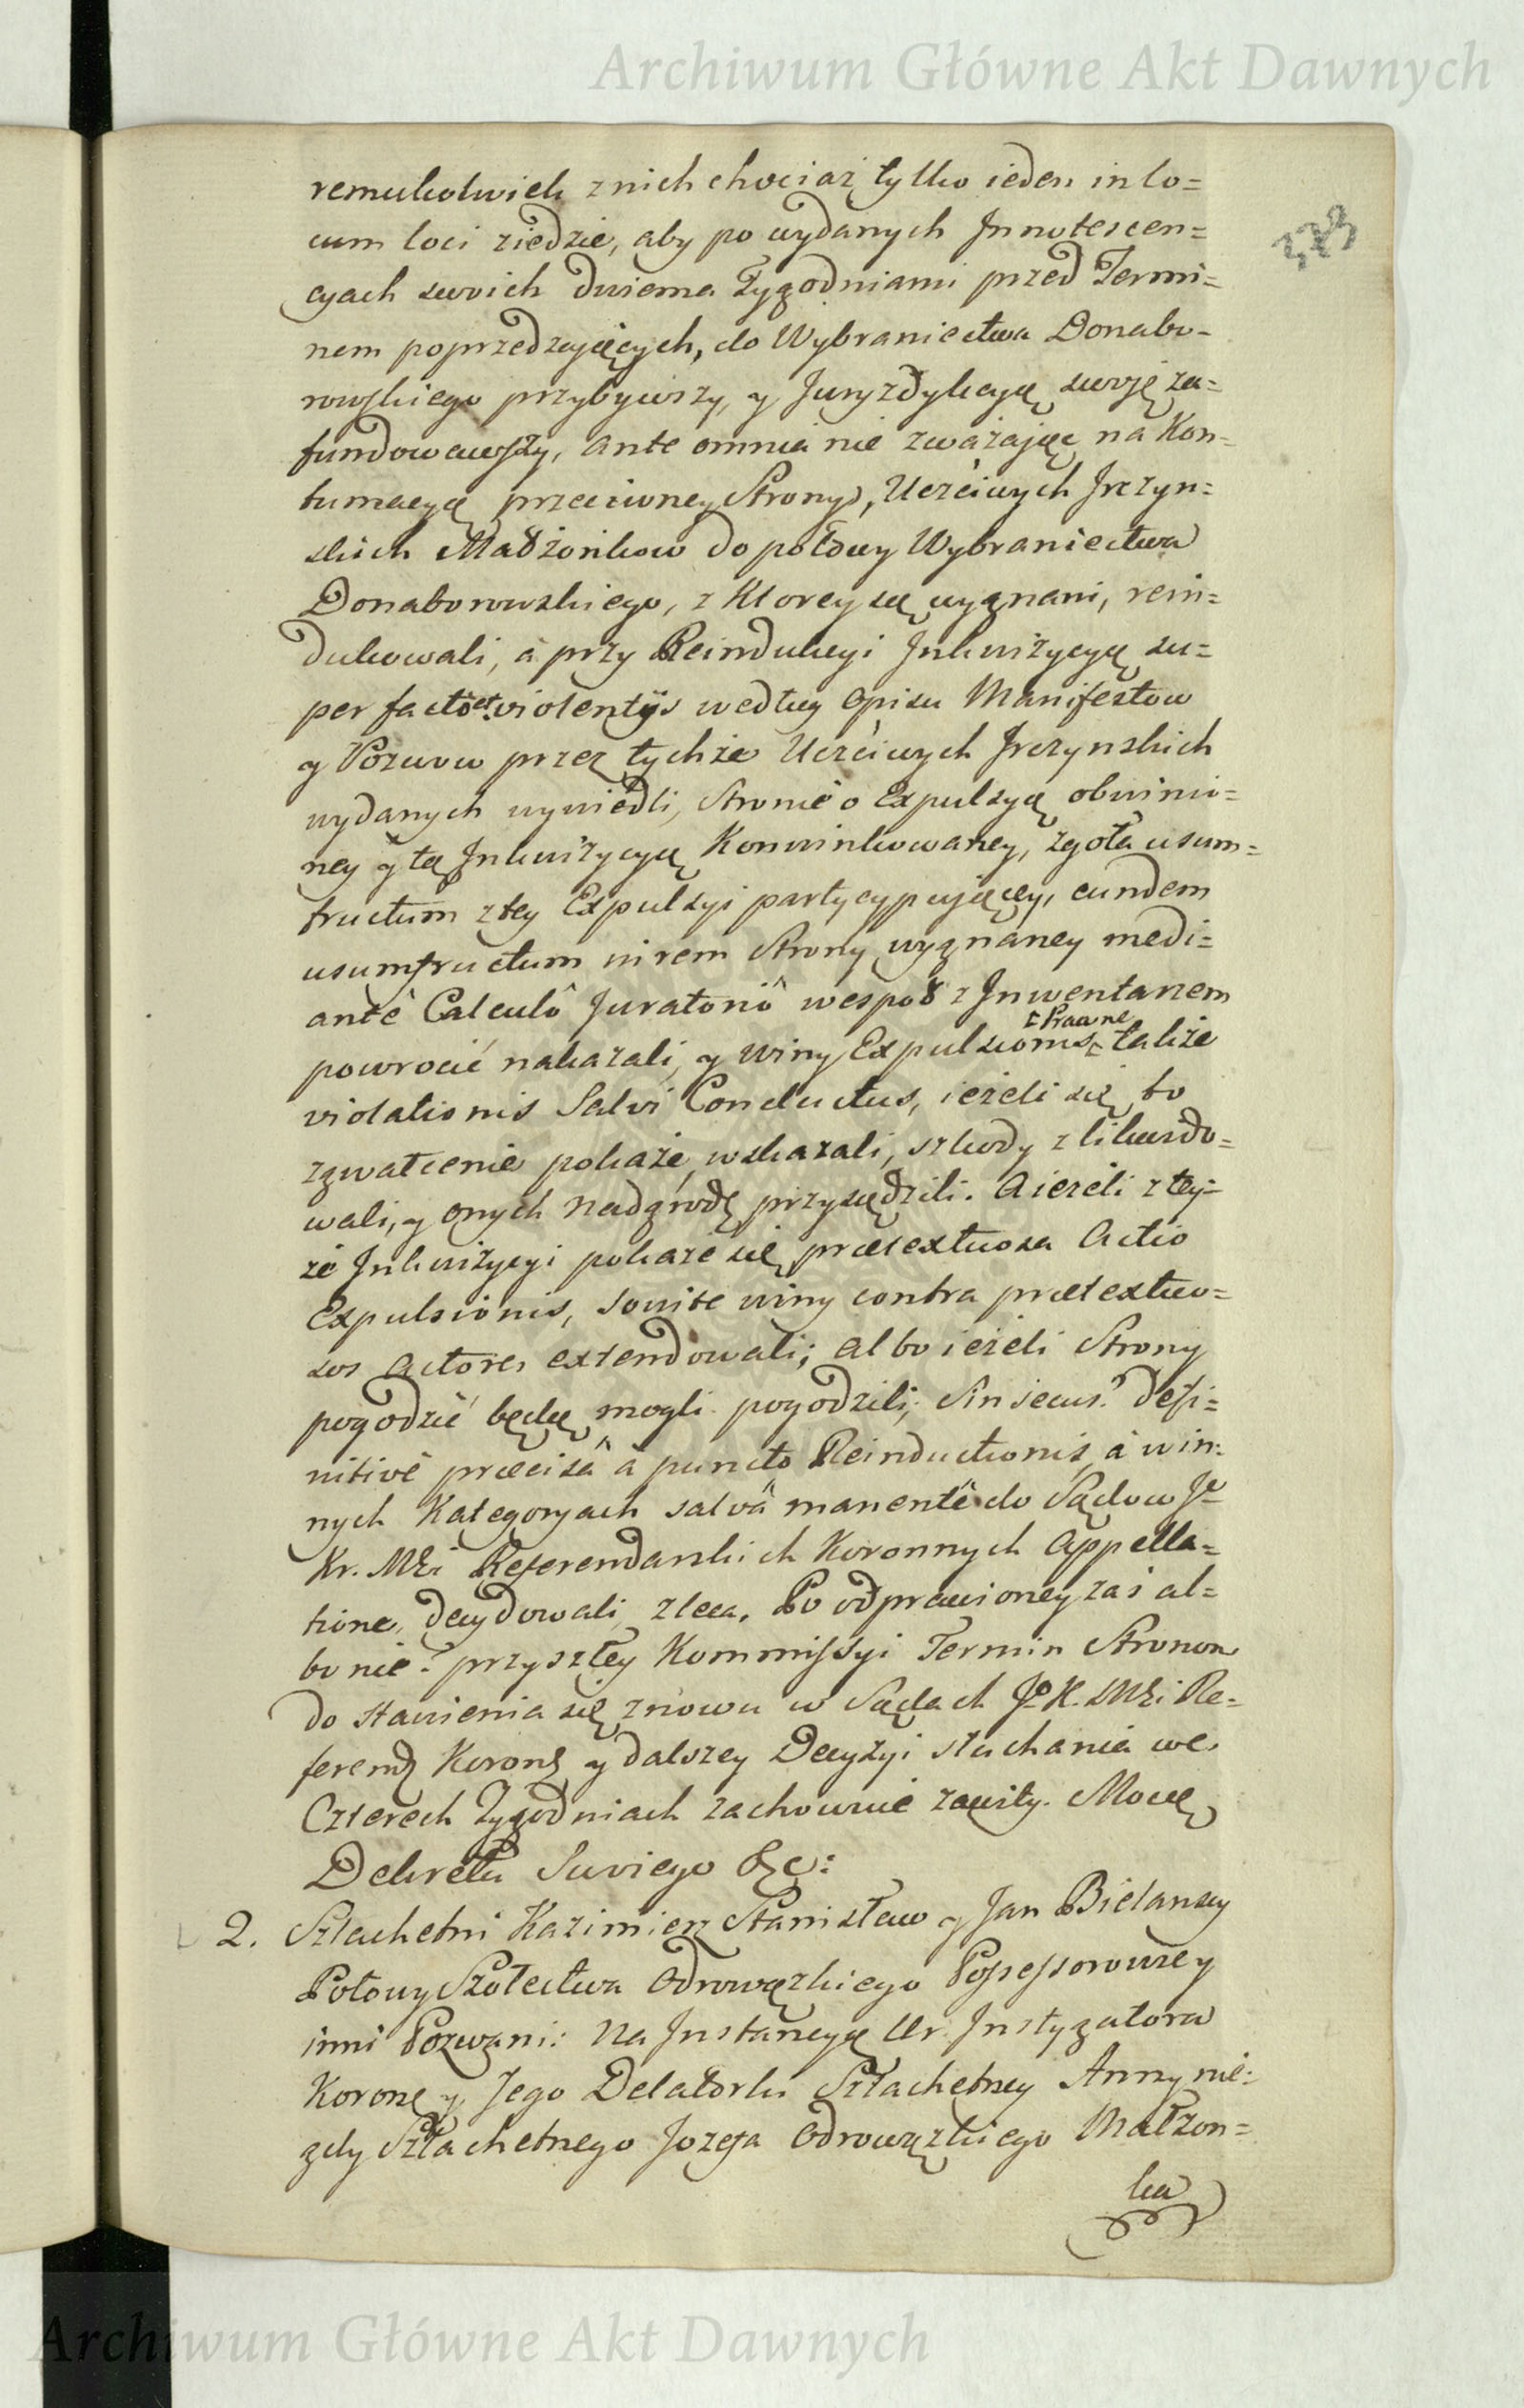 Archiwum Główne Akt Dawnych
remukolwiek z nich chociaż tylko ieden in lo=
cum loci ziedzie, aby po wydanych Innotescen=
cyach swoich dwiema Tygodniami przed Termi=
nem poprzedzaiących, do Wybraniectwa Donabo=
rowskiego przybywszy, y Juryzdykcyą swoię za=
fundowawszy, ante omnia nie zważaiąc na Kon=
tumacyą przeciwney Strony, Uczciwych Jrczyn=
skich Małżonkow do połowy Wybraniectwa
Donaborowskiego, z Ktorey są wygnani, rein=
dukowali, a przy Reindukcyi Inkwizycyą su=
per facto et violentijs według Opisu Manifestow
y Pozwow przez tychże Uczciwych Jrczynskich
wydanych wywiedli, Stronie o Expulsyą obwinio=
ney y tą Inkwizycyą Konwinkowaney, zgoła usum=
fructum z tey Expulsyi partycypuiącey, eundem
usumfructum in rem Strony wygnaney medi=
ante Calculô Juratoriô wespoł z Inwentarzem
powrocić nakazali, y winy Expulsionis także
Prawne
violationis Salvi Conductus, ieżeli się to
zgwałcenie pokaże, wskazali, szkody zlikwido=
wali, y onych nadgrodę przysądzili. A ieżeli z tey=
że Inkwizycyi pokaże się prætextuosa Actio
Expulsionis, sowite winy contra prætextuo=
sos Actores extendowali; albo ieżeli Strony
pogodzić będą mogli pogodzili; Sin secus? defi=
nitivè præcisâ à puncto Reinductionis, a w in=
nych Kategoryach salvâ manente do Sądow Jo
Kr. Mści Referendarskich Koronnych Appella=
tione, decydowali, zleca. Po odprawioney zaś al=
bo nie? przyszłey Kommissyi Termin Stronom
do stawienia się znowu w Sądach Jo K. Mści Re=
ferend Koron y dalszey Decyzyi słuchania we
Czterech Tygodniach zachowuie zawity. Mocą
Dekretu Swoiego &c:
2. Szlachetni Kazimierz Stanisław y Jan Bielanscy
Połowy Szołectwa Odrowązkiego Possessorowie y
inni Pozwani: Na Instancyą Ur. Instygatora
Koron y Jego Delatorki Szlachetney Anny nie=
gdy Szlachetnego Jozefa Odrowązkiego Małżon=
ka
Archiwum Główne Akt Dawnych